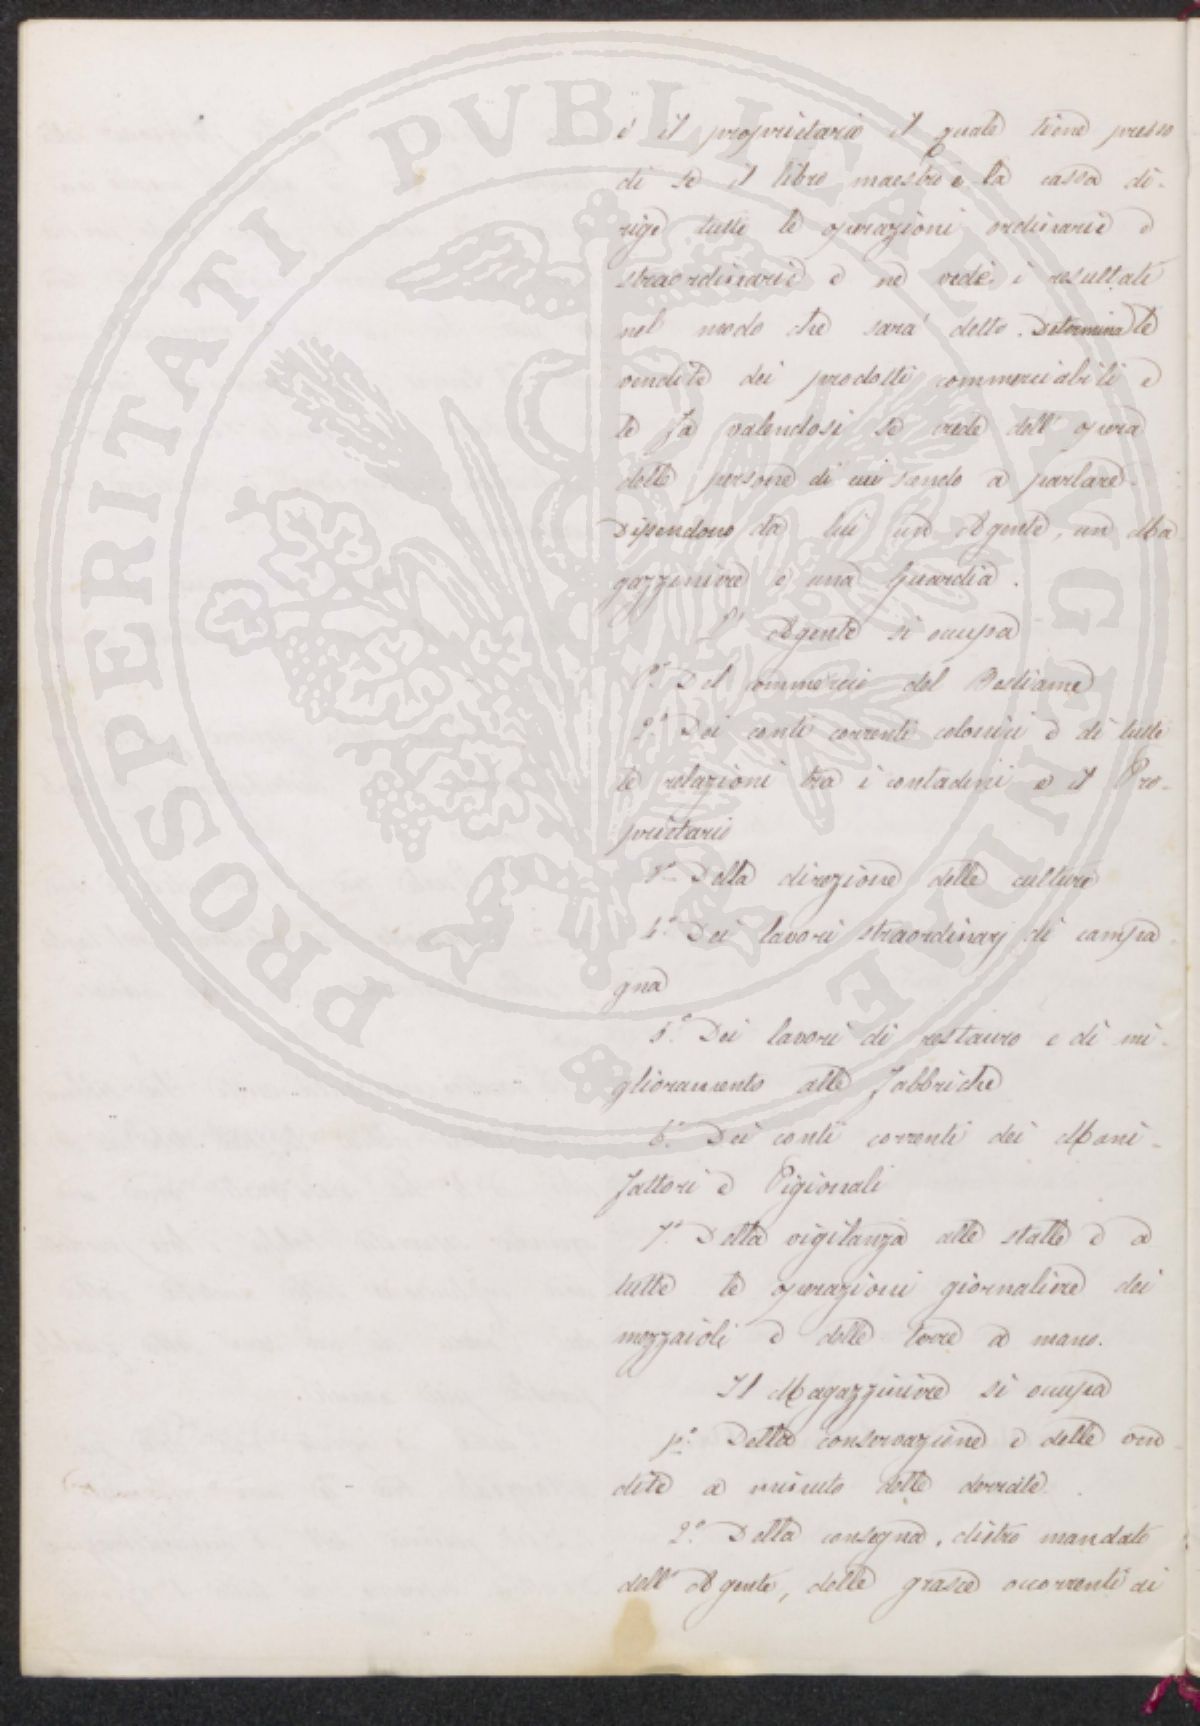 è il proprietario il quale tiene presso
di se il libro maestro e la cassa di-
rige tutte le operazioni ordinarie e
straordinarie e ne vede i resultati
nel modo che sarà detto. Determina le
vendite dei prodotti commerciabili e
le fa valendosi se crede dell' opera
delle persone di cui sendo a parlare.
Dipendono da lui un Agente, un Ma
gazziniere e una Guardia.
L' Agente si occupa
1º. Del commercio del Bestiame
2º. Dei conti correnti colonici e di tutte
le relazioni tra i contadini e il Pro-
prietario
3º Della direzione delle culture
4º. Dei lavori straordinarj di campa
gna
5º. Dei lavori di restauro e di mi-
glioramento alle fabbriche
6º. Dei conti correnti dei Mani-
fattori e Pigionali
7º. Della vigilanza alle stalle e a
tutte le operazioni giornaliere dei
mezzaioli e delle terre a mano.
Il Magazziniere si occupa
pº. Della conservazione e delle ven
dite a minuto delle derrate.
2º. Della consegna, dietro mandato
dell' Agente, delle grasce occorrenti ai
PROSPERITATI PVBLICAE AVGENDAE